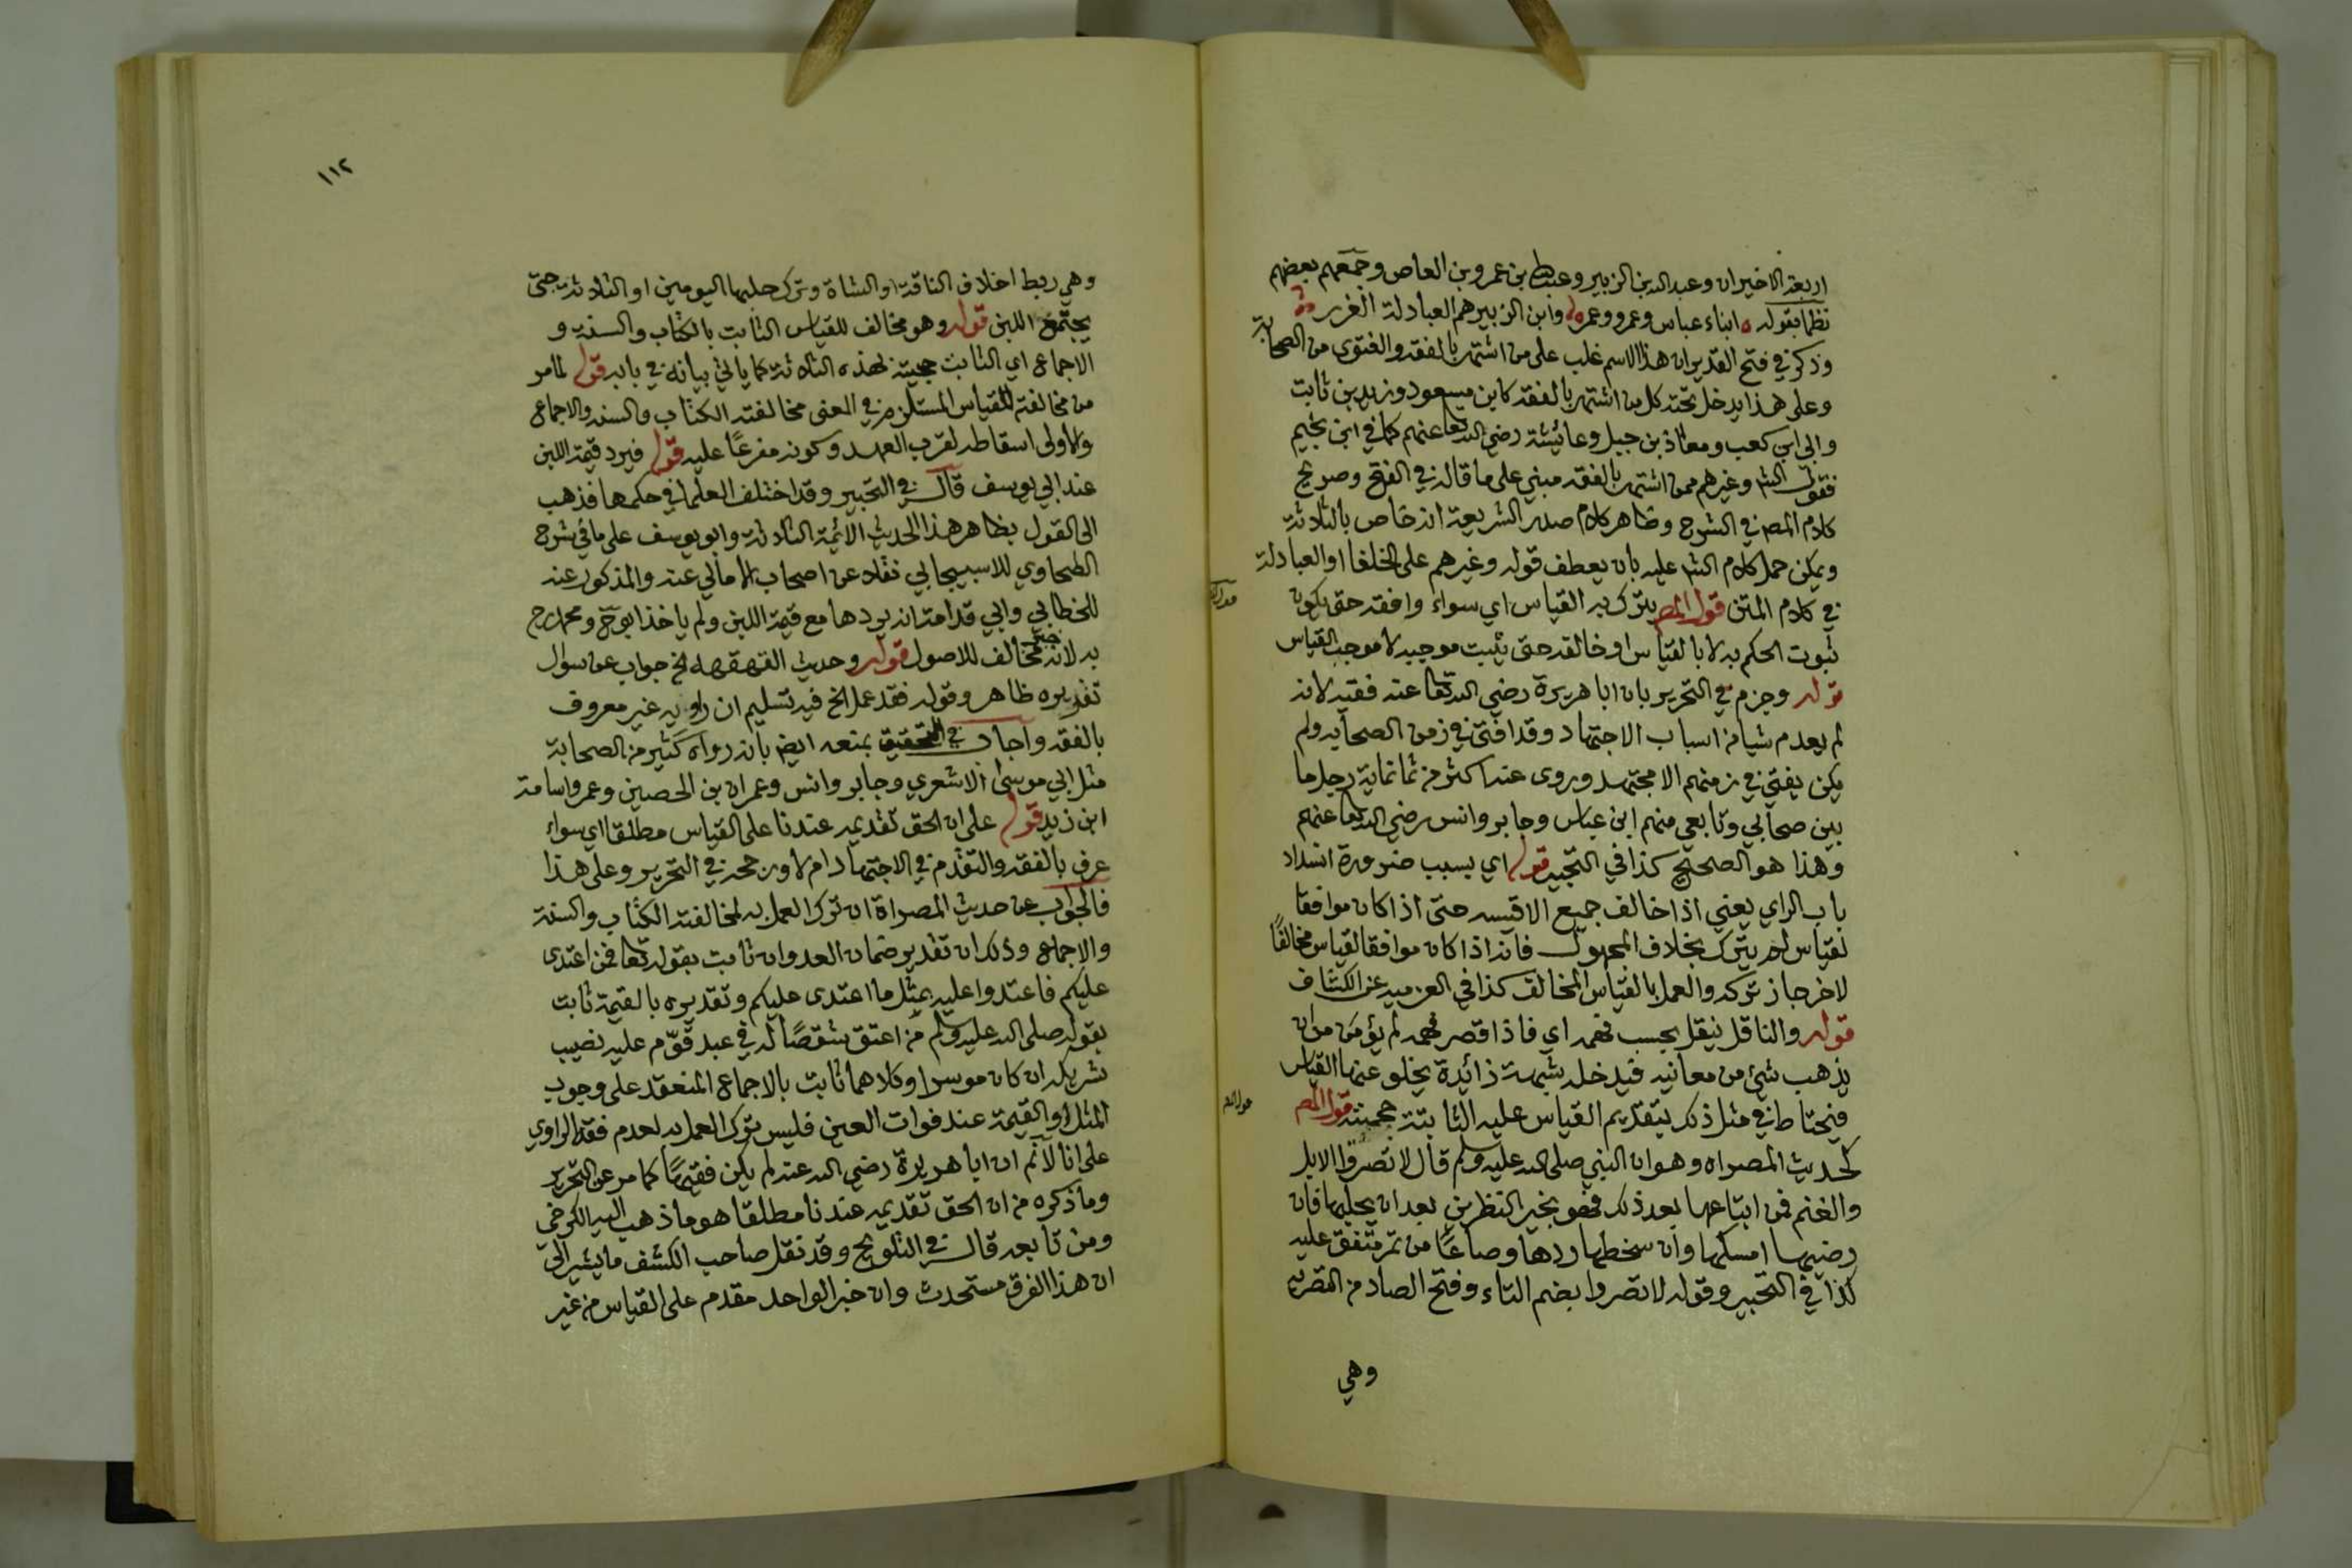 اربعة الاخيران وعبد الله بن الزبير وعبد الله بن عمرو بن العاص وجمعهم بعضهم
نظما بقوله ابناء عباس وعمرو وعمر وابن الزبير هم العبادلة الغرر
وذكر في فتح القدير ان هذا الاسم غلب على من اشتهر بالفقه والفتوى من الصحابة
وعلى هذا يدخل تحته كل من اشتهر بالفقه كابن مسعود وزيد بن ثابت
وابي ابن كعب ومعاذ بن جبل وعائشة رضي الله تعا عنهم كما في ابن نجيم
فقول الش وغيرهم ممن اشتهر بالفقه مبني على ما قاله في الفتح وصريح
كلام المصر في الشرح وظاهر كلام صدر الشريعة انه خاص بالثلاثة
ويمكن حمل كلام الش عليه بان يعطف قوله وغيرهم على الخلفا او العبادلة
في كلام المتن قول المصر يترك به القياس اي سواء وافقه حتى يكون
ثبوت الحكم به لا بالقياس او خالفه حتى يثبت موجبه لا موجب القياس
قوله وجزم في التحرير بان ابا هريرة رضي الله تعا عنه فقيه لانه
لم يعدم شيا من اسباب الاجتهاد وقد افتى في زمن الصحابه ولم
يكن يفتى في زمنهم الا مجتهد وروى عنه اكثر من ثمانماية رجل ما
بين صحابي وتابعي منهم ابن عباس وجابر وانس رضي الله تعا عنهم
وهذا هو الصحيح كذا في التحبير قوله اي بسبب ضرورة انسداد
باب الراي يعني اذا خالف جميع الاقيسه حتى اذا كان موافقا
لقياس اخر يترك بخلاف المجهول فانه اذا كان موافقا لقياس مخالفًا
لاخر جاز تركه والعمل بالقياس المخالف كذا في العزميه عن الكشاف
قوله والناقل ينقل بحسب فهمه اي فاذا قصر فهمه لم يؤمن من ان
يذهب شئ من معانيه فيدخله شبهة زائدة يخلو عنها القياس
فيحتاط في مثل ذلك بتقديم القياس عليه الثابتة حجيته قول المصر
كحديث المصراه وهو ان النبي صلى الله عليه وسلم قال لا تصروا الابل
والغنم فمن ابتاعها بعد ذلك فهو بخير النظرين بعد ان يحلبها فان
رضيها امسكها وان سخطها ردها وصاعًا من تمر متفق عليه
كذا في التحبير وقوله لا تصروا بضم التاء وفتح الصاد من التصريه
وهي
١١٢
وهي ربط اخلاف الناقة او الشاة وترك حلبها اليومين او الثلاثة حتى
يجتمع اللبن قوله وهو مخالف للقياس الثابت بالكتاب والسنة و
الاجماع اي الثابت حجيته بهذه الثلاثة كما ياتي بيانه في بابه قوله لما مر
من مخالفته للقياس المستلزم في المعنى مخالفته الكتاب والسنه والاجماع
والاولى اسقاطه لقرب العهد وكونه مفرعًا عليه قوله فيرد قيمة اللبن
عند ابي يوسف قال في التحبير وقد اختلف العلما في حكمها فذهب
الى القول بظاهر هذا الحديث الائمة الثلاثة وابو يوسف على ما في شرح
الطحاوي للاسبيجابي نقلا عن اصحاب الامالي عنه والمذكور عنه
للخطابي وابي قدامة انه يردها مع قيمة اللبن ولم ياخذ ابو ح ومحمد رح
به لانه خبر مخالف للاصول قوله وحديث القهقهه الخ جواب عن سوال
تقديره ظاهر وقوله فقد عمل الخ فيه تسليم ان راويه غير معروف
بالفقه واجاب في التحقيق بمنعه ايض بانه رواه كثير من الصحابة
مثل ابي موسى الاشعري وجابر وانس وعمران بن الحصين وعمر واسامة
ابن زيد قوله على ان الحق تقديمه عندنا على القياس مطلقا اي سواء
عرف بالفقه والتقدم في الاجتهاد ام لا ورجحه في التحرير وعلى هذا
فالجواب عن حديث المصراة ان ترك العمل به لمخالفته الكتاب والسنة
والاجماع وذلك ان تقدير ضمان العدوان ثابت بقوله تعا فمن اعتدى
عليكم فاعتدوا عليه بمثل ما اعتدى عليكم وتقديره بالقيمة ثابت
بقوله صلى الله عليه وسلم من اعتق شقصًا له في عبد قوّم عليه نصيب
شريكه ان كان موسرا وكلاهما ثابت بالاجماع المنعقد على وجوب
المثل او القيمة عند فوات العين فليس ترك العمل به لعدم فقه الراوي
على انا لا نم ان ابا هريرة رضي الله عنه لم يكن فقيهًا كما مر عن التحرير
وما ذكره من ان الحق تقديمه عندنا مطلقا هو ما ذهب اليه الكرخي
ومن تابعه قال في التلويح وقد نقل صاحب الكشف ما يشير الى
ان هذا الفرق مستحدث وان خبر الواحد مقدم على القياس من غير